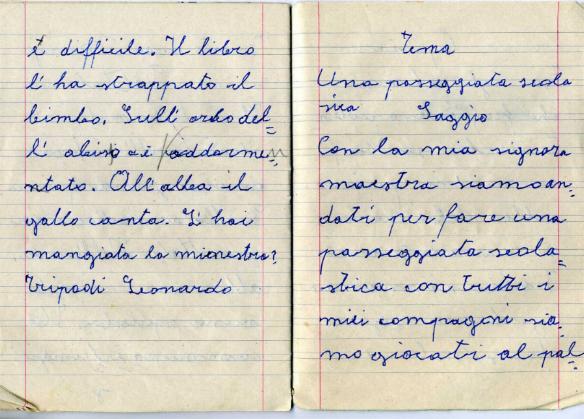 è difficile. Il libro
l'ha strappato il
bimbo. Sull'orlo del=
l'abisso si è addorme=
ntato. All'albea il
gallo canta. L'hai
mangiata la mienestra?
Tripodi Leonardo
Tema
Una passeggiata scola
stica Saggio
Con la mia signora
maestra siamo an=
dati per fare una
passeggiata scola=
stica con tutti i
miei compagoni sia=
mo giocati al pal=